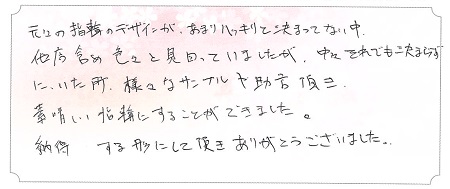 元々の指輪のデザインが、あまりハッキリと決まってない中、
他店含め色々と見回っていましたが、中々それでも決まらず
にいた所、様々なサンプルや助言頂き
素晴しい指輪にすることができました。
納得 する形にして頂きありがとうございました。